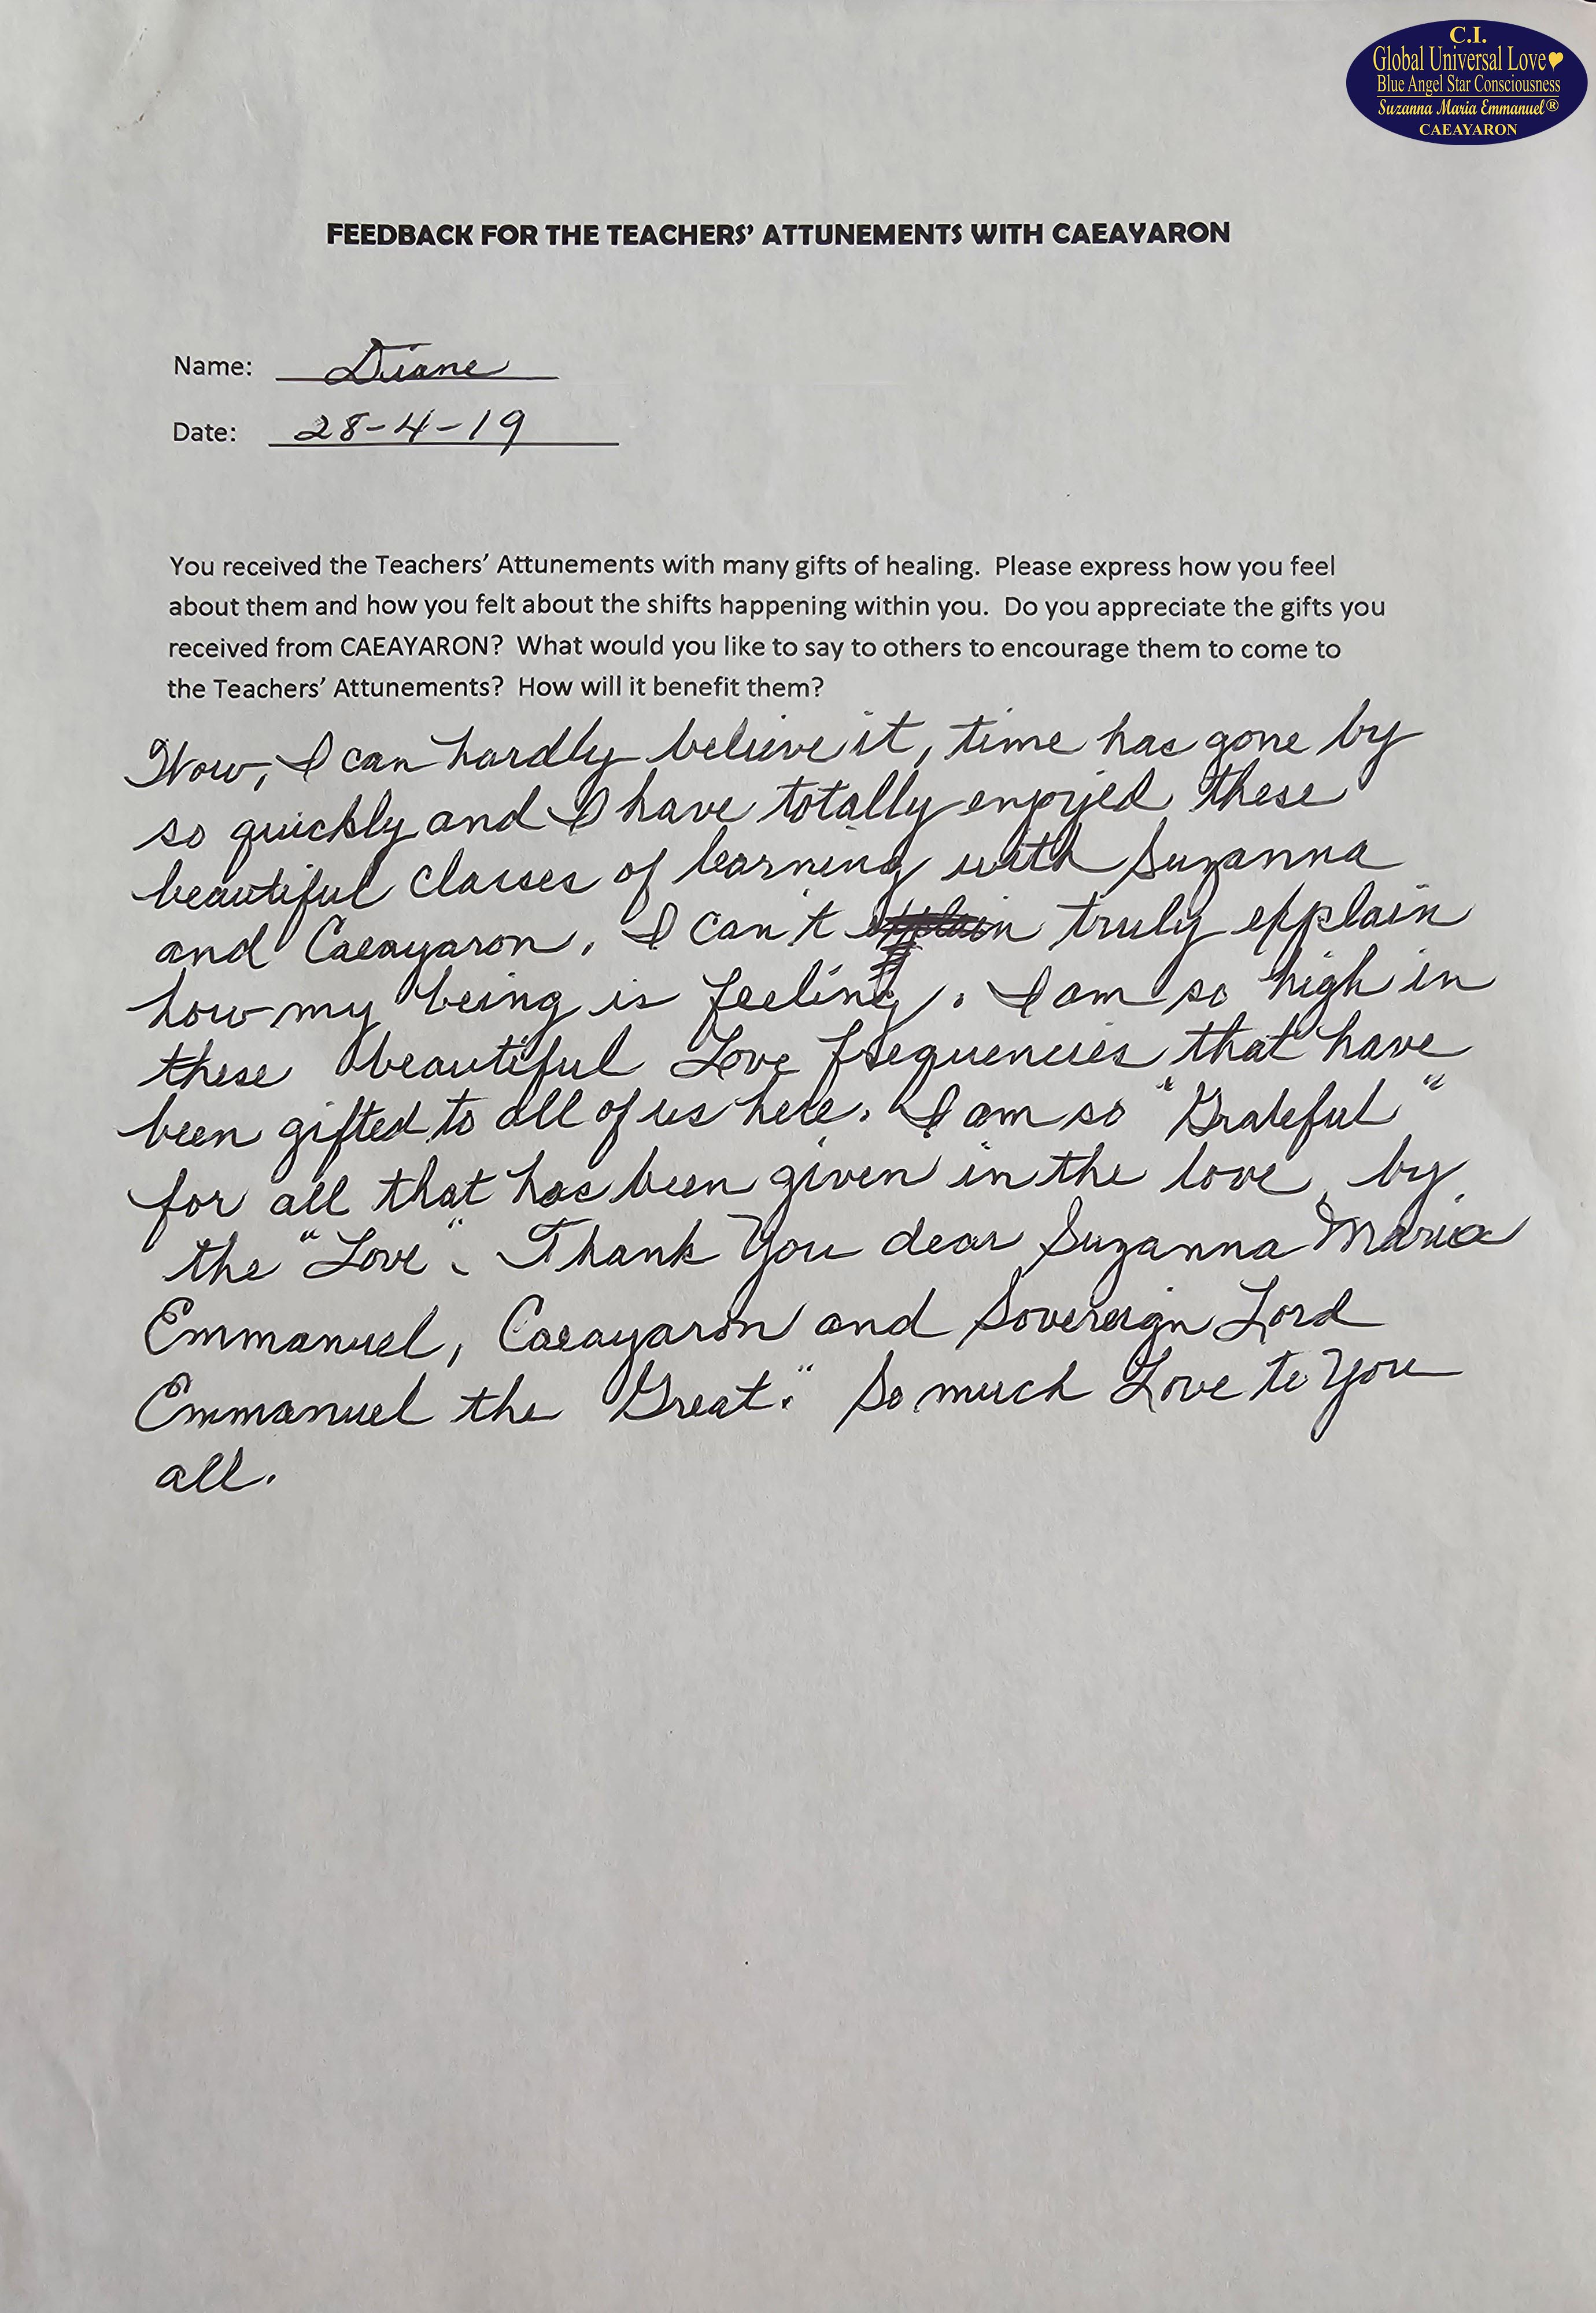 C.I.
Global Universal Love
Blue Angel Star Consciousness
Suzanna Maria Emmanuel®
CAEAYARON
FEEDBACK FOR THE TEACHERS' ATTUNEMENTS WITH CAEAYARON
Name: Diane
Date: 28-4-19
You received the Teachers' Attunements with many gifts of healing. Please express how you feel
about them and how you felt about the shifts happening within you. Do you appreciate the gifts you
received from CAEAYARON? What would you like to say to others to encourage them to come to
the Teachers' Attunements? How will it benefit them?
Wow, I can hardly believe it, time has gone by
so quickly and I have totally enjoyed these
beautiful classes of learning with Suzanna
and Caeayaron. I can't truly explain
how my being is feeling. I am so high in
these beautiful Love frequencies that have
been gifted to all of us here. I am so "Grateful"
for all that has been given in the love, by
the "Love". Thank You dear Suzanna Maria
Emmanuel, Caeayaron and Sovereign Lord
Emmanuel the Great." So much Love to You
all.